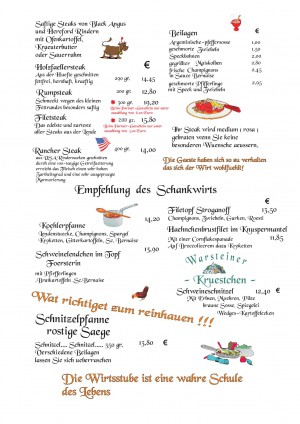 Saftige Steaks von Black Angus
und Hereford Rindern
mit Ofenkartoffel,
Kraeuterbutter
oder Sauerrahm
€
Holzfaellersteak
Aus der Huefte geschnitten
herzhaft, kraeftig
250 gr. 14,45
Rumpsteak
200 gr. 12,80
Schmeckt wegen des kleinen
Fettrandes besonders saftig
300 gr. 19,20
Filetsteak
200 gr. 15,80
Das edelste und zarteste
aller Steaks aus der Lende
Rancher Steak
300 gr. 14,00
Beilagen €
Argentinische-pfeffersosse 1,00
geschmorte Zwiebeln 1,50
Speckbohnen 2,00
gegrillter Maiskolben 2,80
frische Champignons
in Sauce Bernaise 2,95
Pfifferlinge geschmort
mit Speck und Zwiebeln 3,95
Ihr Steak wird medium ( rosa )
gebraten wenn Sie es nicht
besonderes Wuensche aeussern.
Die Gaeste haben sich so zu verhalten
das sich der Wirt wohlfuehlt!
Empfehlung des Schankwirts
Kochlerpfanne 14,20
Lendensteucke, Champignons, Spargel
Kroketten, Gitterkartoffeln, Sc. Bernaise
Schweinelendchen im Topf
Foersterin 15,90
mit Pfifferlingen
Bratkartoffeln, Sc. Bernaise
Filetopf Stroganoff 13,50 €
Champignons, Zwiebeln, Gurken, Roesti
Haehnchenbrustfilet im Knuspermantel
Mit einer Cornflakespanade 11,85
Auf Broccolicreme dazu Kroketten
Warsteiner
- Kruestchen -
Schweineschnitzel 12,40 €
Mit Erbsen, Moehren, Pilze
braune Sosse, Spiegelei
Wedges-Kartoffelecken
Was richtiget zum reinhauen !!!
Schnitzelpfanne
rostige Saege
€
Schnitzel..... Schnitzel..... 350 gr. 13,80
Verschiedene Beilagen
lassen Sie sich ueberraschen
Die Wirtsstube ist eine wahre Schule
des Lebens